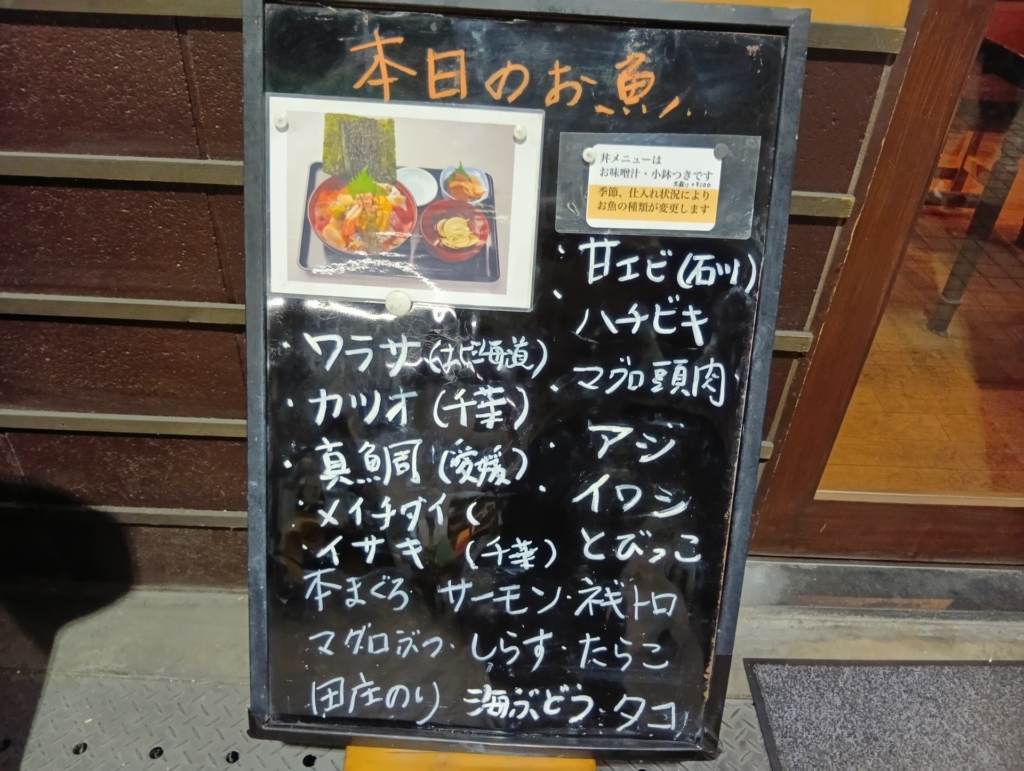 本日のお魚
丼メニューは
お味噌汁・小鉢つきです
大盛り+¥100
季節、仕入れ状況により
お魚の種類が変更します
・甘エビ(石川)
・ハチビキ
・マグロ頭肉
・アジ
・イワシ
とびっこ
・ワラサ(北海道)
・カツオ(千葉)
・真鯛(愛媛)
・メイチダイ(
・イサキ (千葉)
本まぐろ サーモン・ネギトロ
マグロぶつ・しらす・たらこ
田庄のり 海ぶどう・タコ